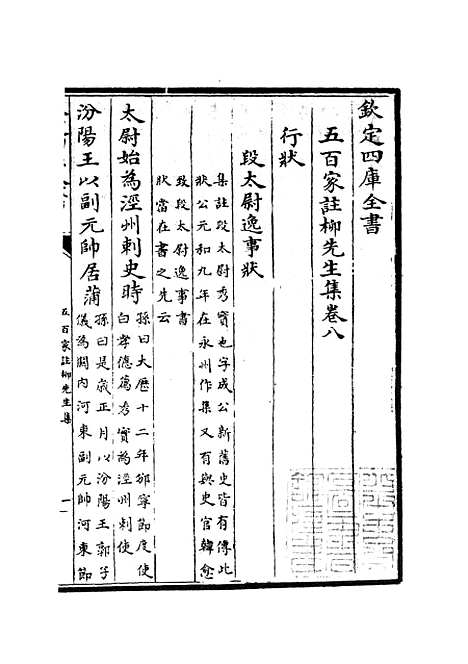 欽定四庫全書
五百家註柳先生集卷八
行狀
段太尉逸事狀
集註段太尉秀實也字成公新舊史皆有傳此
狀公元和九年在永州作集又有與史官韓愈
致段太尉逸事書
狀當在書之先云
太尉始為涇州刺史時
孫曰大厯十二年邠寧節度使
白孝德薦秀實為涇州刺使
汾陽王以副元帥居蒲
孫曰是歳正月以汾陽王郭子
儀為闗内河東副元帥河東節
五百家註柳先生集
一